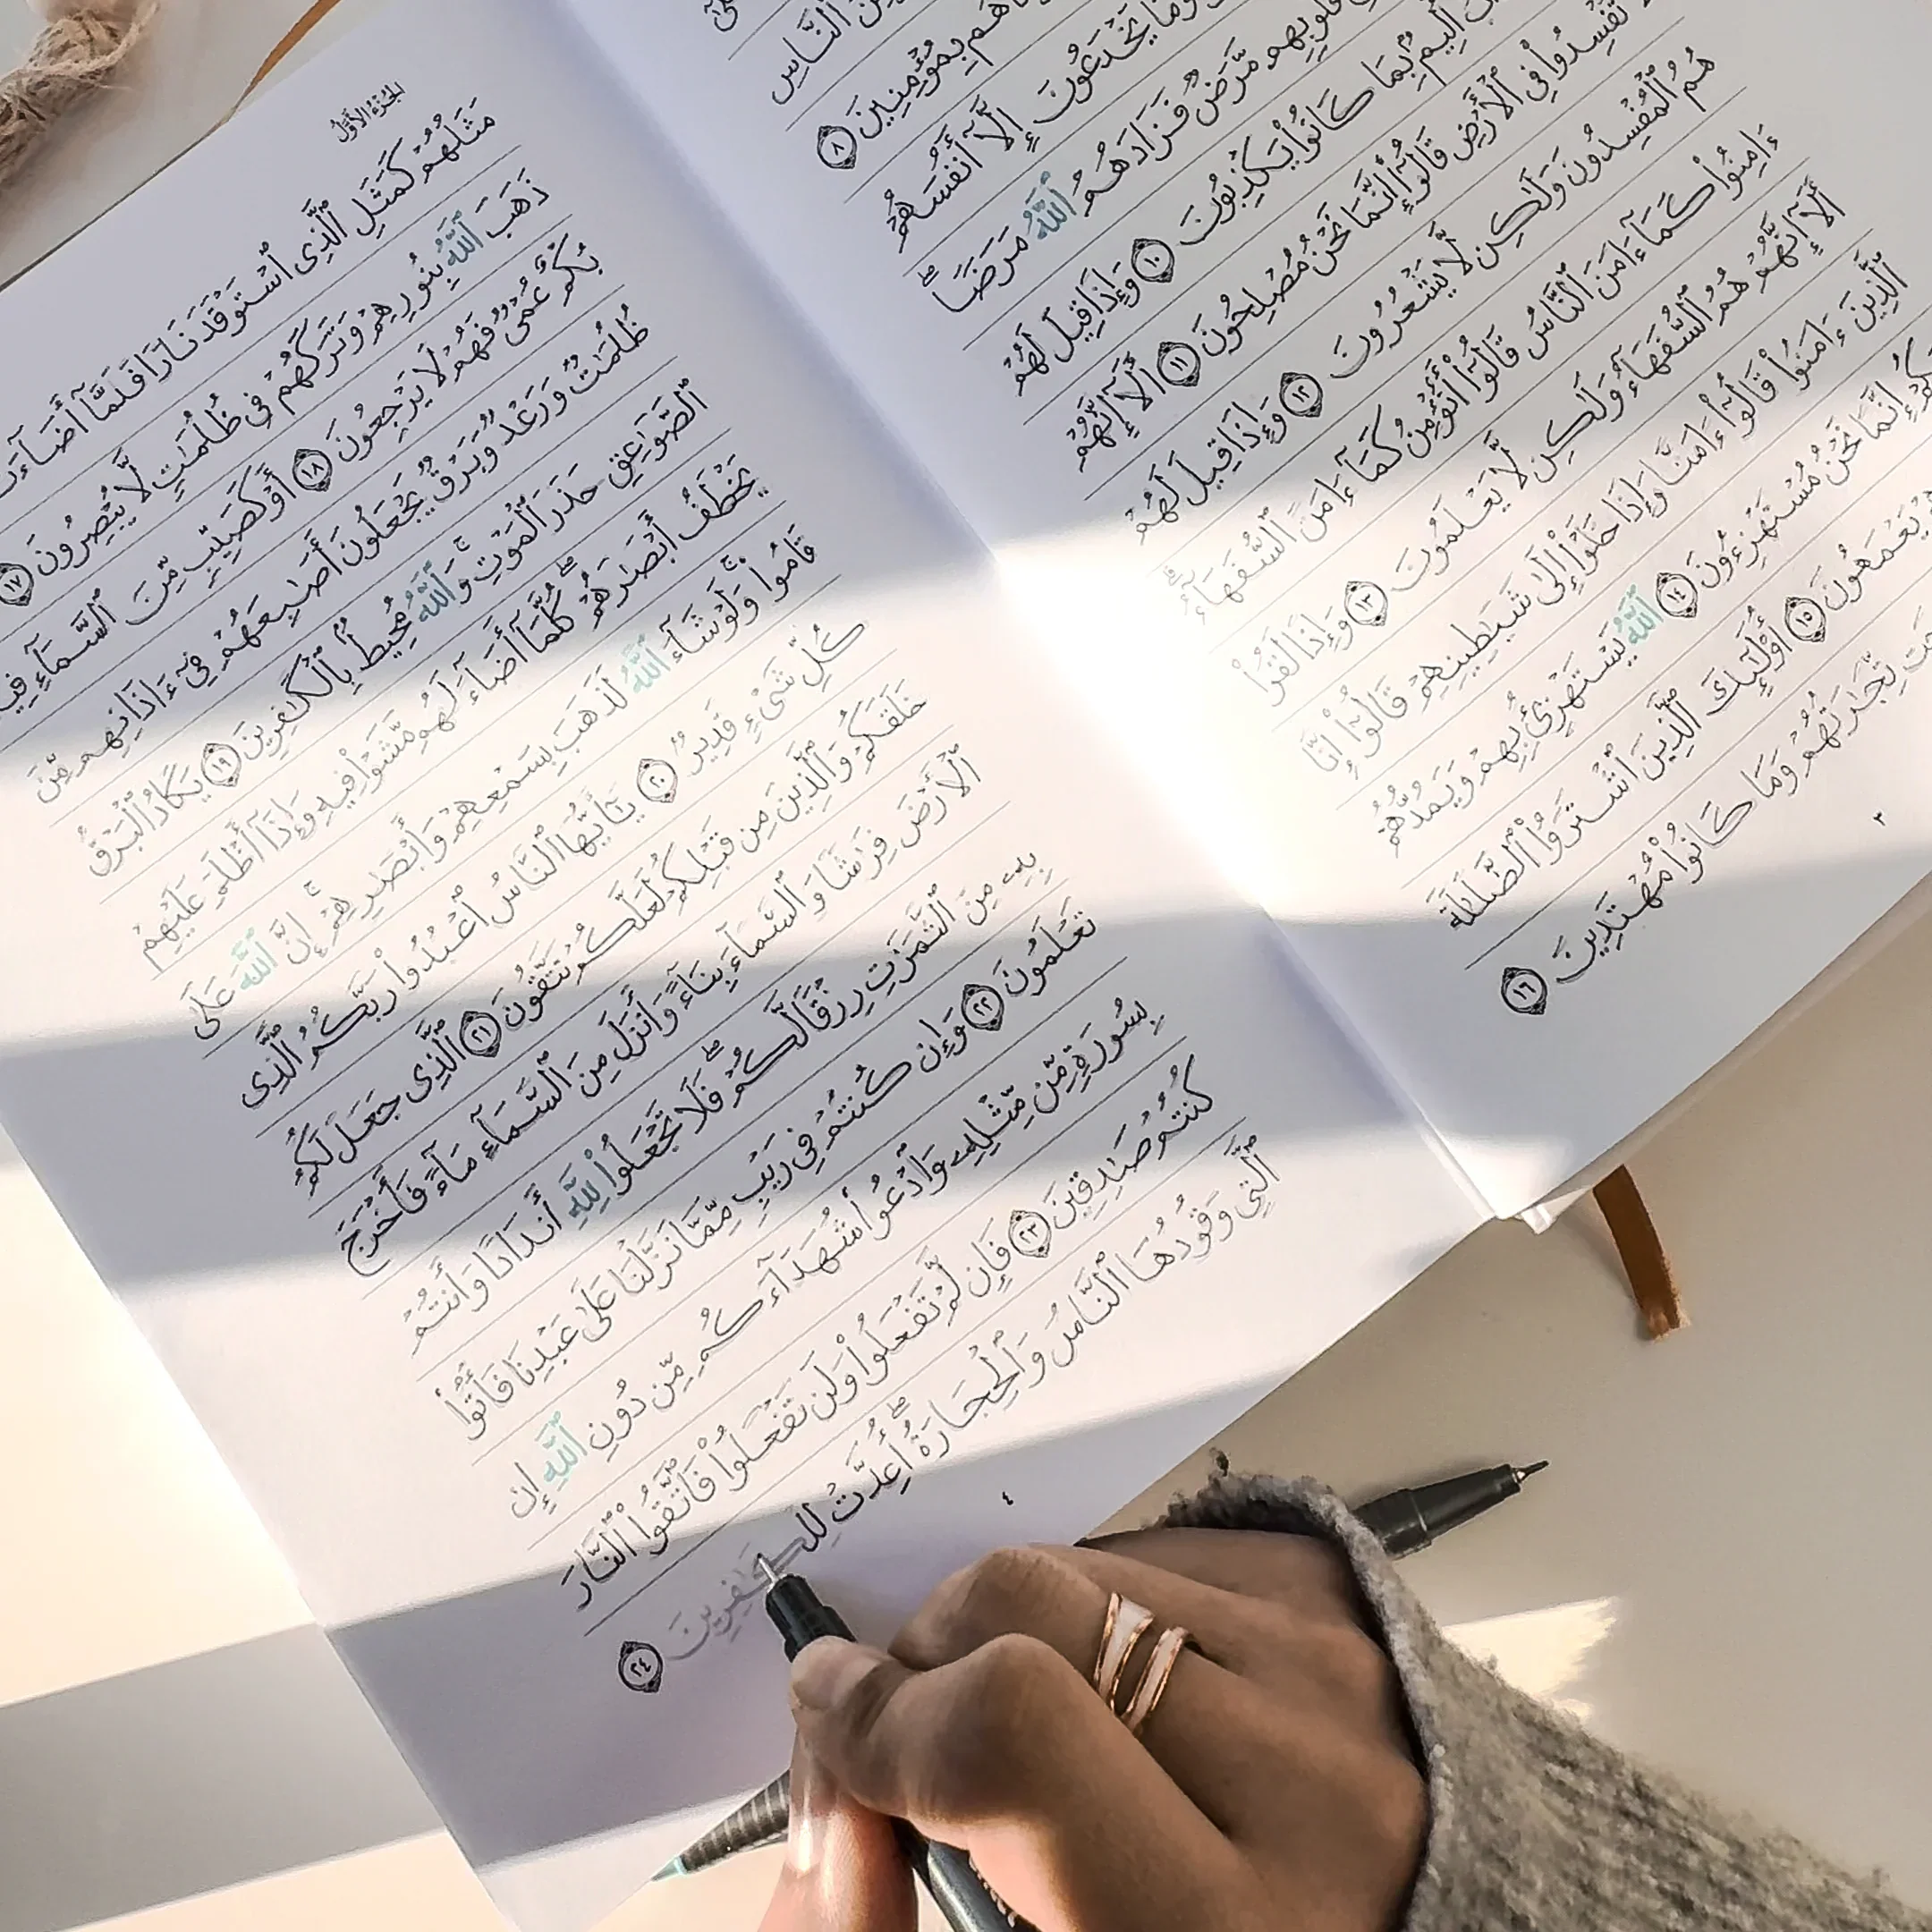 ٱلنَّاسِ
بِمُؤْمِنِينَ ٨
وَمَا يَخْدَعُونَ إِلَّآ أَنفُسَهُمْ
قُلُوبِهِم مَّرَضٌ فَزَادَهُمُ ٱللَّهُ مَرَضًا ۖ
أَلِيمٌۢ بِمَا كَانُوا۟ يَكْذِبُونَ ١٠ وَإِذَا قِيلَ لَهُمْ
تُفْسِدُوا۟ فِى ٱلْأَرْضِ قَالُوٓا۟ إِنَّمَا نَحْنُ مُصْلِحُونَ ١١ أَلَآ إِنَّهُمْ
هُمُ ٱلْمُفْسِدُونَ وَلَٰكِن لَّا يَشْعُرُونَ ١٢ وَإِذَا قِيلَ لَهُمْ
ءَامِنُوا۟ كَمَآ ءَامَنَ ٱلنَّاسُ قَالُوٓا۟ أَنُؤْمِنُ كَمَآ ءَامَنَ ٱلسُّفَهَآءُ ۗ
أَلَآ إِنَّهُمْ هُمُ ٱلسُّفَهَآءُ وَلَٰكِن لَّا يَعْلَمُونَ ١٣ وَإِذَا لَقُوا۟
ٱلَّذِينَ ءَامَنُوا۟ قَالُوٓا۟ ءَامَنَّا وَإِذَا خَلَوْا۟ إِلَىٰ شَيَٰطِينِهِمْ قَالُوٓا۟ إِنَّا
إِنَّمَا نَحْنُ مُسْتَهْزِءُونَ ١٤ ٱللَّهُ يَسْتَهْزِئُ بِهِمْ وَيَمُدُّهُمْ
يَعْمَهُونَ ١٥ أُو۟لَٰٓئِكَ ٱلَّذِينَ ٱشْتَرَوُا۟ ٱلضَّلَٰلَةَ
تِّجَٰرَتُهُمْ وَمَا كَانُوا۟ مُهْتَدِينَ ١٦
٣
الجُزْءُ الأَوَّلُ
مَثَلُهُمْ كَمَثَلِ ٱلَّذِى ٱسْتَوْقَدَ نَارًا فَلَمَّآ أَضَآءَتْ
ذَهَبَ ٱللَّهُ بِنُورِهِمْ وَتَرَكَهُمْ فِى ظُلُمَٰتٍ لَّا يُبْصِرُونَ ١٧
بُكْمٌ عُمْىٌ فَهُمْ لَا يَرْجِعُونَ ١٨ أَوْ كَصَيِّبٍ مِّنَ ٱلسَّمَآءِ فِيهِ
ظُلُمَٰتٌ وَرَعْدٌ وَبَرْقٌ يَجْعَلُونَ أَصَٰبِعَهُمْ فِىٓ ءَاذَانِهِم مِّنَ
ٱلصَّوَٰعِقِ حَذَرَ ٱلْمَوْتِ ۚ وَٱللَّهُ مُحِيطٌۢ بِٱلْكَٰفِرِينَ ١٩ يَكَادُ ٱلْبَرْقُ
يَخْطَفُ أَبْصَٰرَهُمْ ۖ كُلَّمَآ أَضَآءَ لَهُم مَّشَوْا۟ فِيهِ وَإِذَآ أَظْلَمَ عَلَيْهِمْ
قَامُوا۟ ۚ وَلَوْ شَآءَ ٱللَّهُ لَذَهَبَ بِسَمْعِهِمْ وَأَبْصَٰرِهِمْ ۚ إِنَّ ٱللَّهَ عَلَىٰ
كُلِّ شَىْءٍ قَدِيرٌ ٢٠ يَٰٓأَيُّهَا ٱلنَّاسُ ٱعْبُدُوا۟ رَبَّكُمُ ٱلَّذِى
خَلَقَكُمْ وَٱلَّذِينَ مِن قَبْلِكُمْ لَعَلَّكُمْ تَتَّقُونَ ٢١ ٱلَّذِى جَعَلَ لَكُمُ
ٱلْأَرْضَ فِرَٰشًا وَٱلسَّمَآءَ بِنَآءً وَأَنزَلَ مِنَ ٱلسَّمَآءِ مَآءً فَأَخْرَجَ
بِهِۦ مِنَ ٱلثَّمَرَٰتِ رِزْقًا لَّكُمْ ۖ فَلَا تَجْعَلُوا۟ لِلَّهِ أَندَادًا وَأَنتُمْ
تَعْلَمُونَ ٢٢ وَإِن كُنتُمْ فِى رَيْبٍ مِّمَّا نَزَّلْنَا عَلَىٰ عَبْدِنَا فَأْتُوا۟
بِسُورَةٍ مِّن مِّثْلِهِۦ وَٱدْعُوا۟ شُهَدَآءَكُم مِّن دُونِ ٱللَّهِ إِن
كُنتُمْ صَٰدِقِينَ ٢٣ فَإِن لَّمْ تَفْعَلُوا۟ وَلَن تَفْعَلُوا۟ فَٱتَّقُوا۟ ٱلنَّارَ
ٱلَّتِى وَقُودُهَا ٱلنَّاسُ وَٱلْحِجَارَةُ ۖ أُعِدَّتْ لِلْكَٰفِرِينَ ٢٤
٤